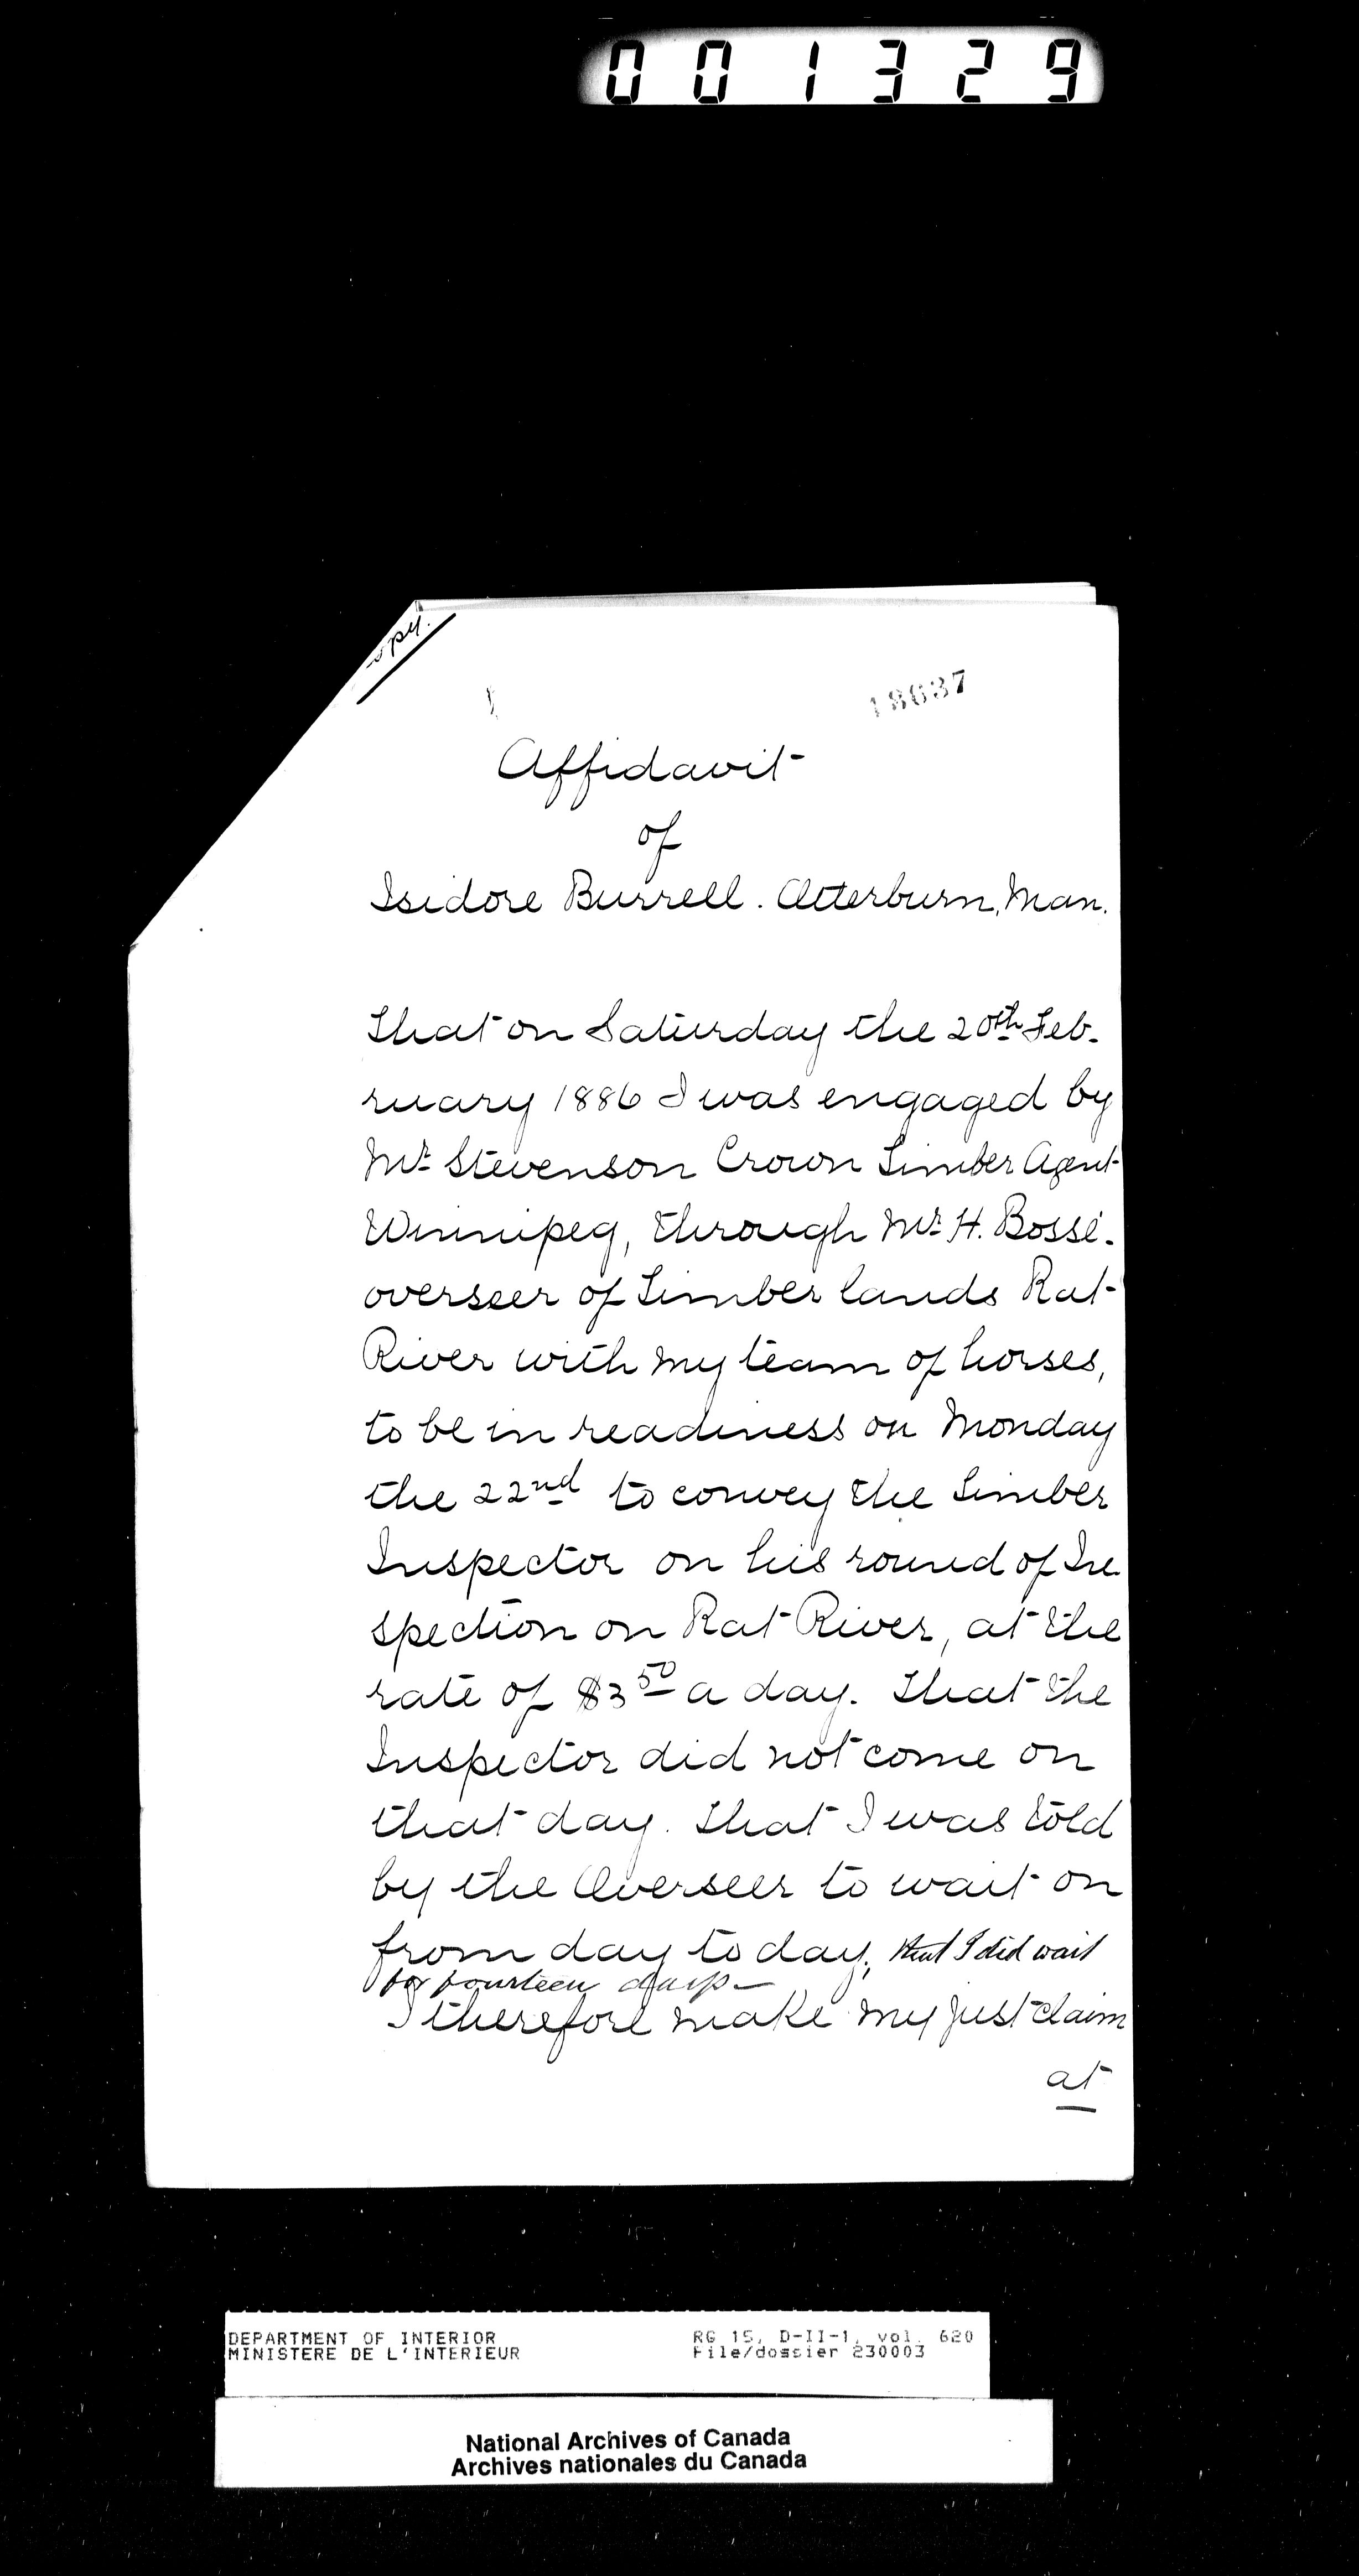 001329
opy.
18637
Affidavit
of
Isidore Burrell. Otterburn, Man.
That on Saturday the 20th Feb-
ruary 1886 I was engaged by
Mr. Stevenson Crown Timber Agent
Winnipeg, through Mr. H. Bossé.
overseer of Timber lands Rat
River with my team of horses,
to be in readiness on Monday
the 22nd to convey the Timber
Inspector on his round of Ins-
pection on Rat River, at the
rate of $3 50 a day. That the
Inspector did not come on
that day. That I was told
by the Overseer to wait on
from day to day, that I did wait
for fourteen days—
I therefore make my just claim
at
DEPARTMENT OF INTERIOR
MINISTERE DE L'INTERIEUR
RG 15, D-II-1, vol. 620
File/dossier 230003
National Archives of Canada
Archives nationales du Canada